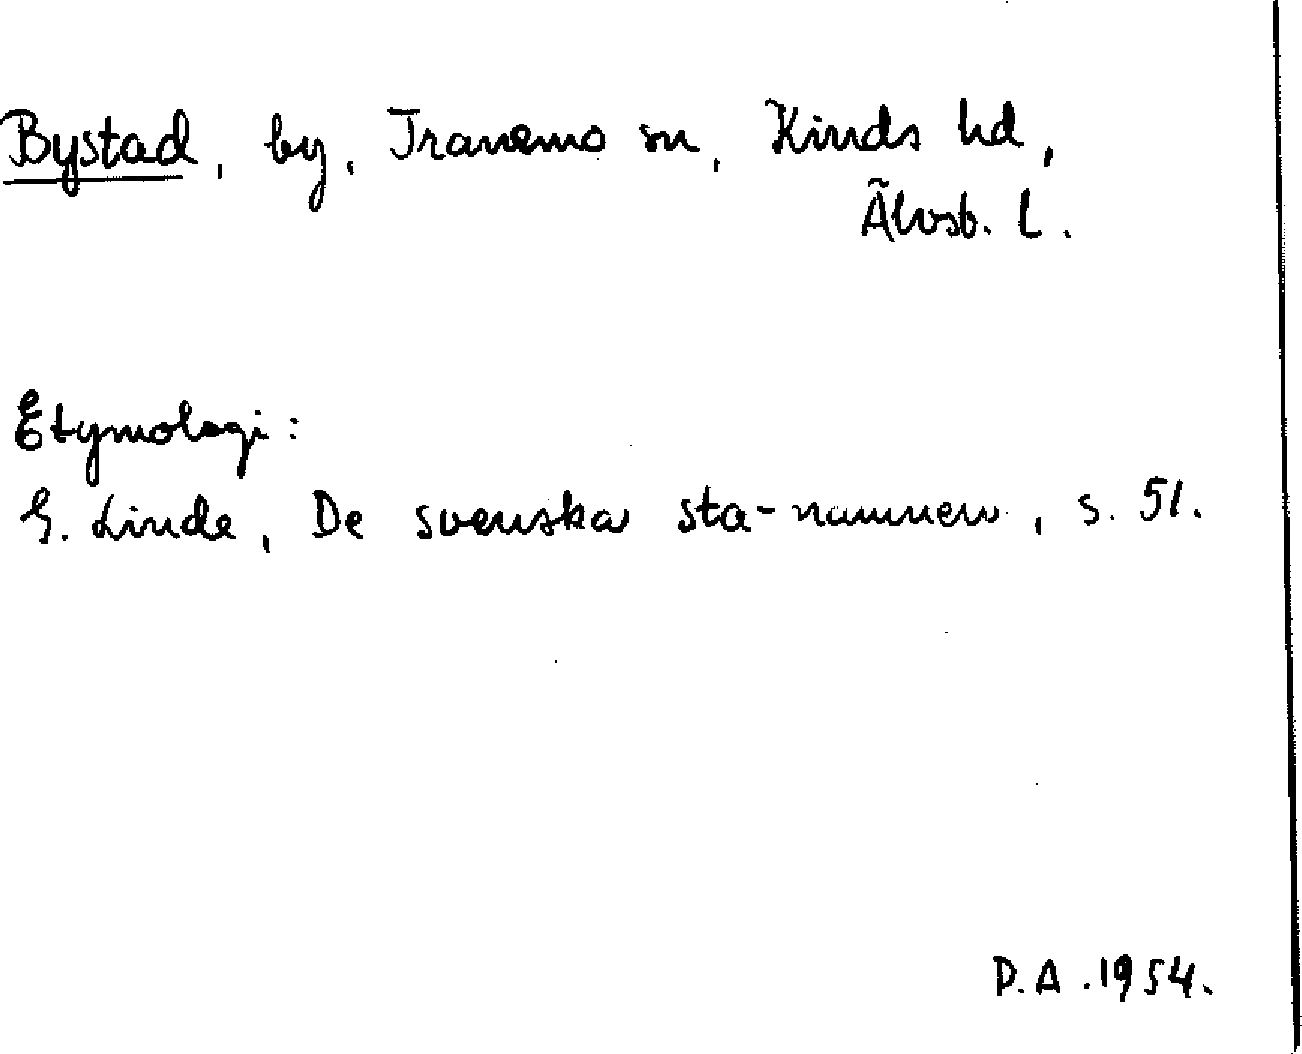 Bystad, by, Tranemo sn, Kinds hd,
Älvsb. l.
Etymologi:
G. Linde, De svenska sta-namnen, s. 51.
P.A. 1954.